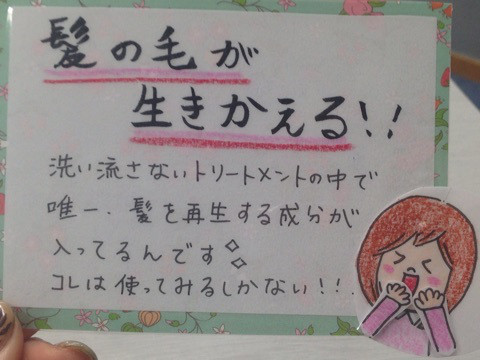 髪の毛が
生きかえる!!
洗い流さないトリートメントの中で
唯一、髪を再生する成分が
入ってるんです
コレは使ってみるしかない!!!